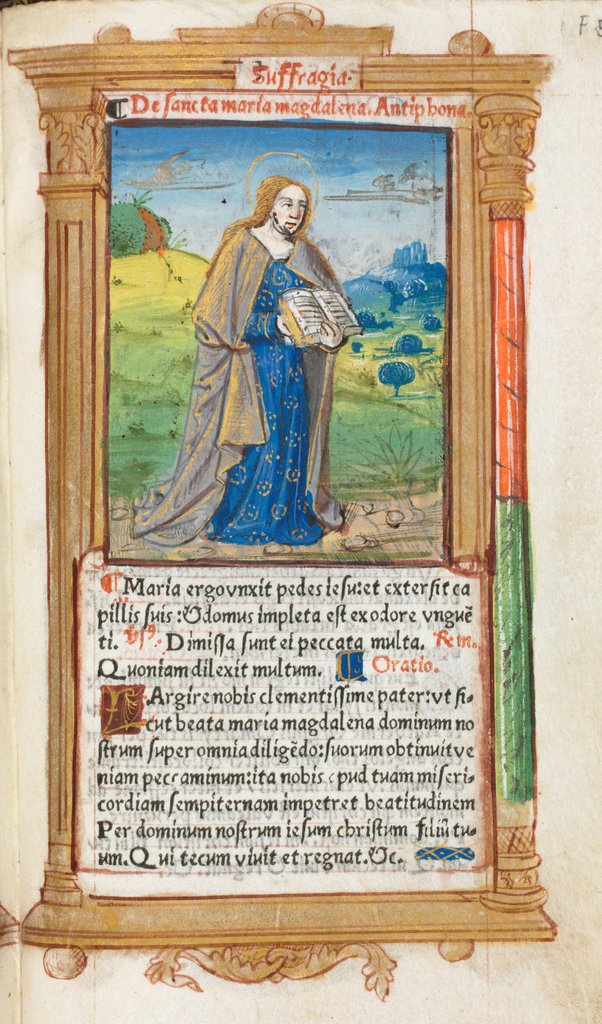 Suffragia.
¶ De sancta maria magdalena. Antiphona.
¶ Maria ergo vnxit pedes iesu: et extersit ca
pillis suis: & domus impleta est ex odore vnguē
ti. Dimissa sunt ei peccata multa. Rem.
Quoniam dilexit multum. Oratio.
LArgire nobis clementissime pater: vt si
cut beata maria magdalena dominum no
strum super omnia diligēdo: suorum obtinuit ve
niam peccaminum: ita nobis apud tuam miseri
cordiam sempiternam impetret beatitudinem
Per dominum nostrum iesum christum filiū tu
um. Qui tecum viuit et regnat. &c.